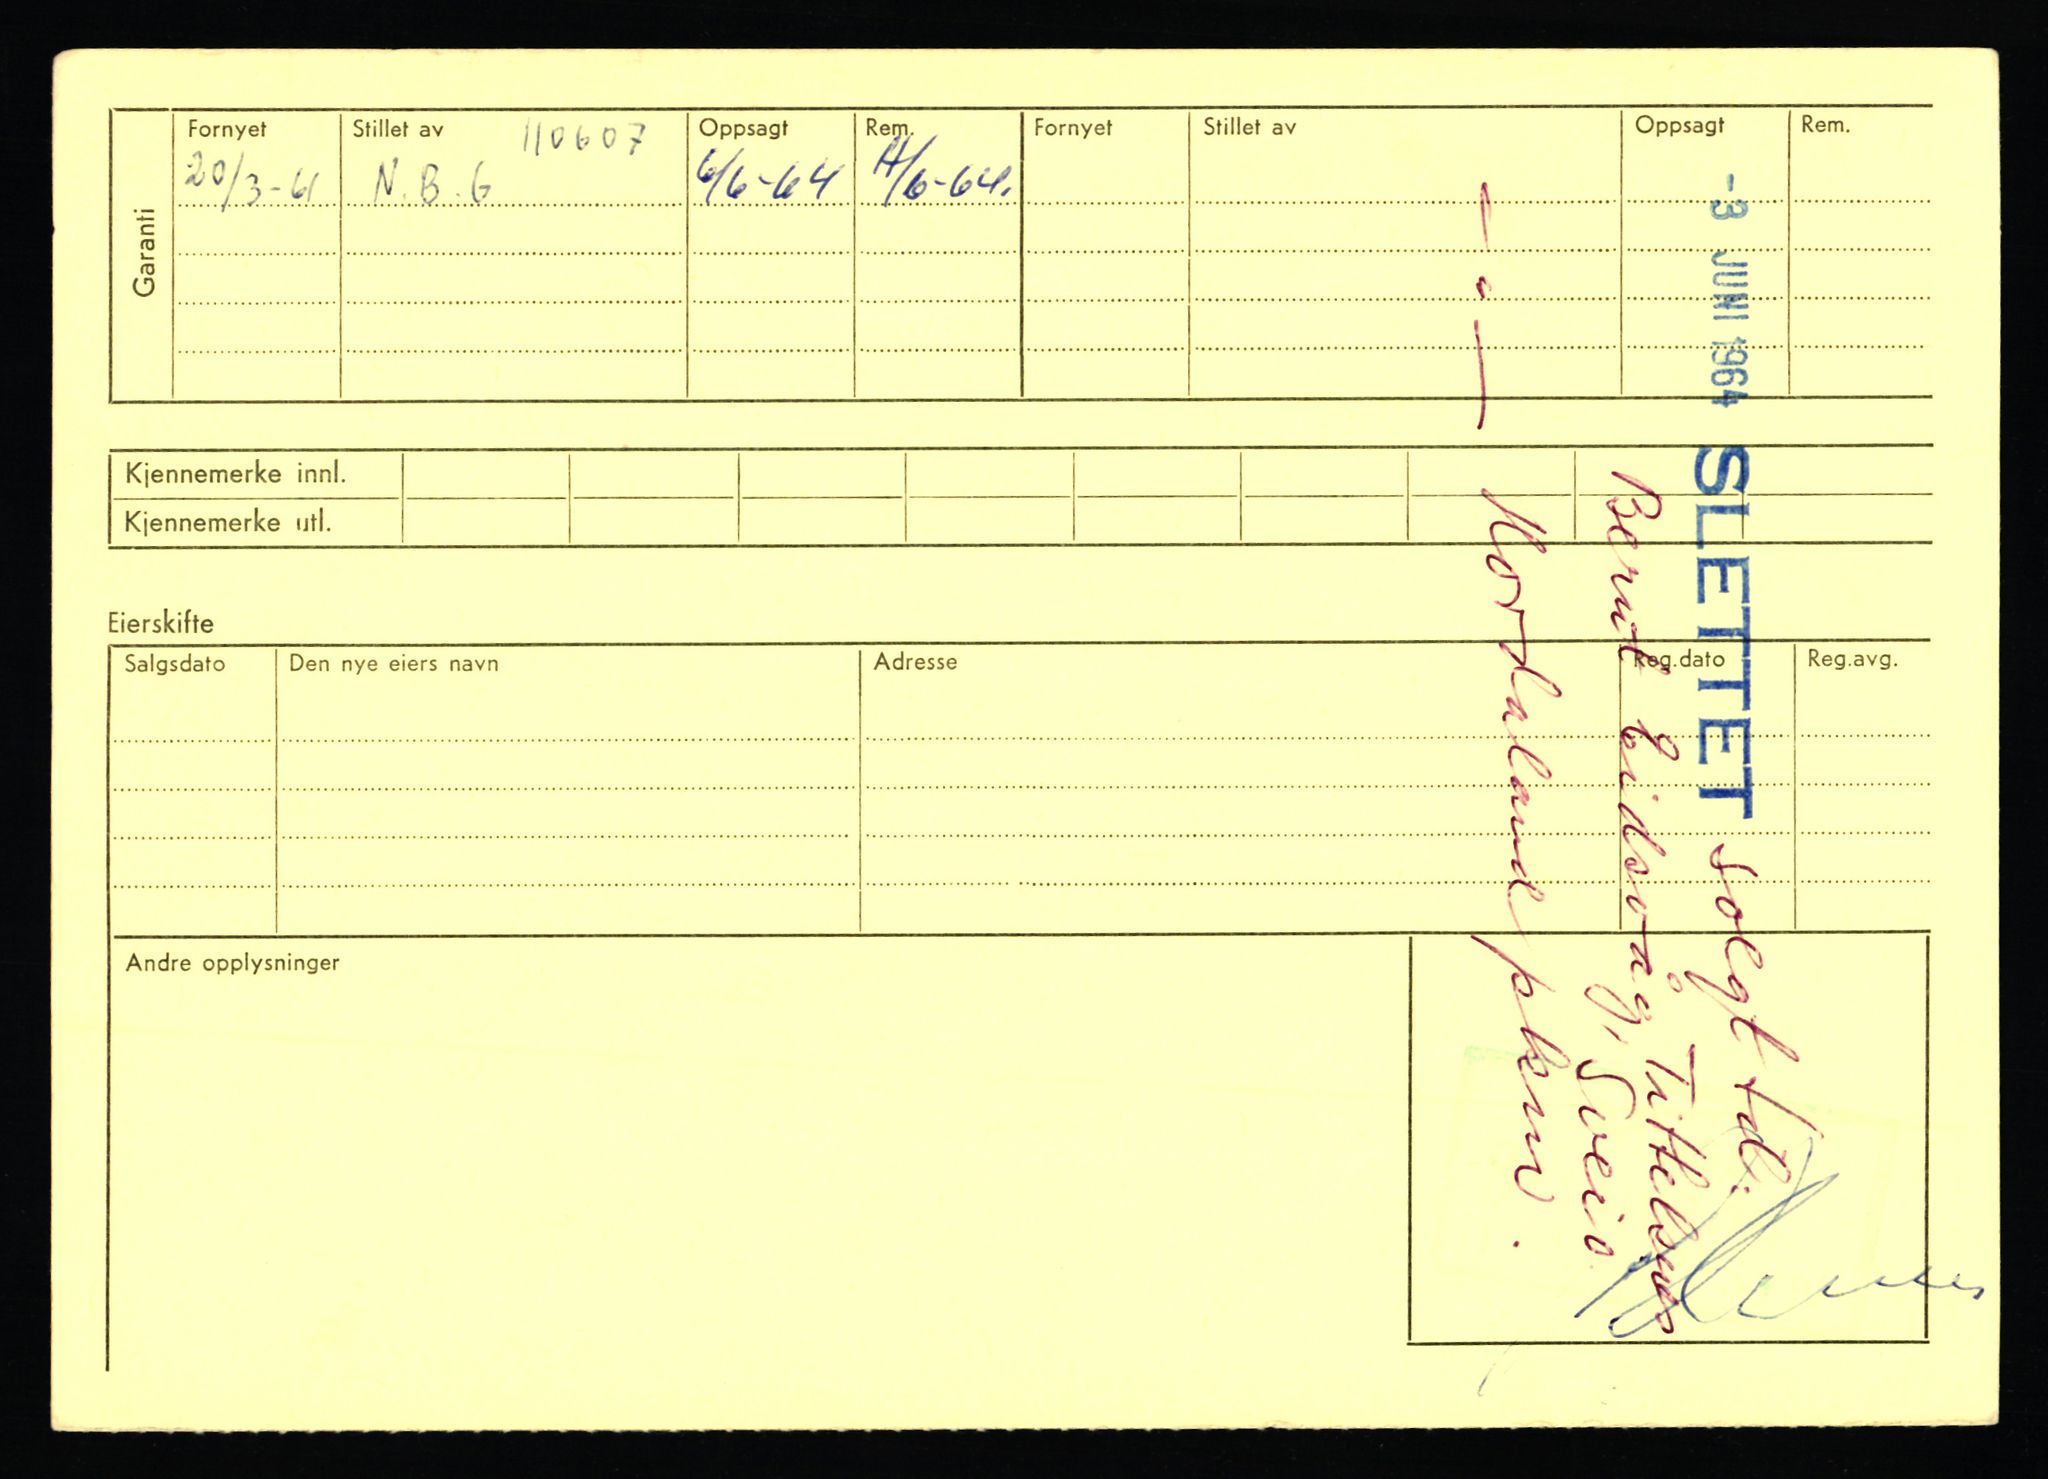 Garanti
Fornyet Stillet av 110607 Oppsagt Rem. Fornyet Stillet av Oppsagt Rem.
20/3-61 N.B.G 6/6-64 /6-64.
Kjennemerke innl.
Kjennemerke utl.
Eierskifte
Salgsdato Den nye eiers navn Adresse Reg.dato Reg.avg.
Andre opplysninger
-3 JUNI 1964 SLETTET Solgt til:
Bernt Eidsvåg, Tittelsnes
Sveio
— " — Hordaland pkm.